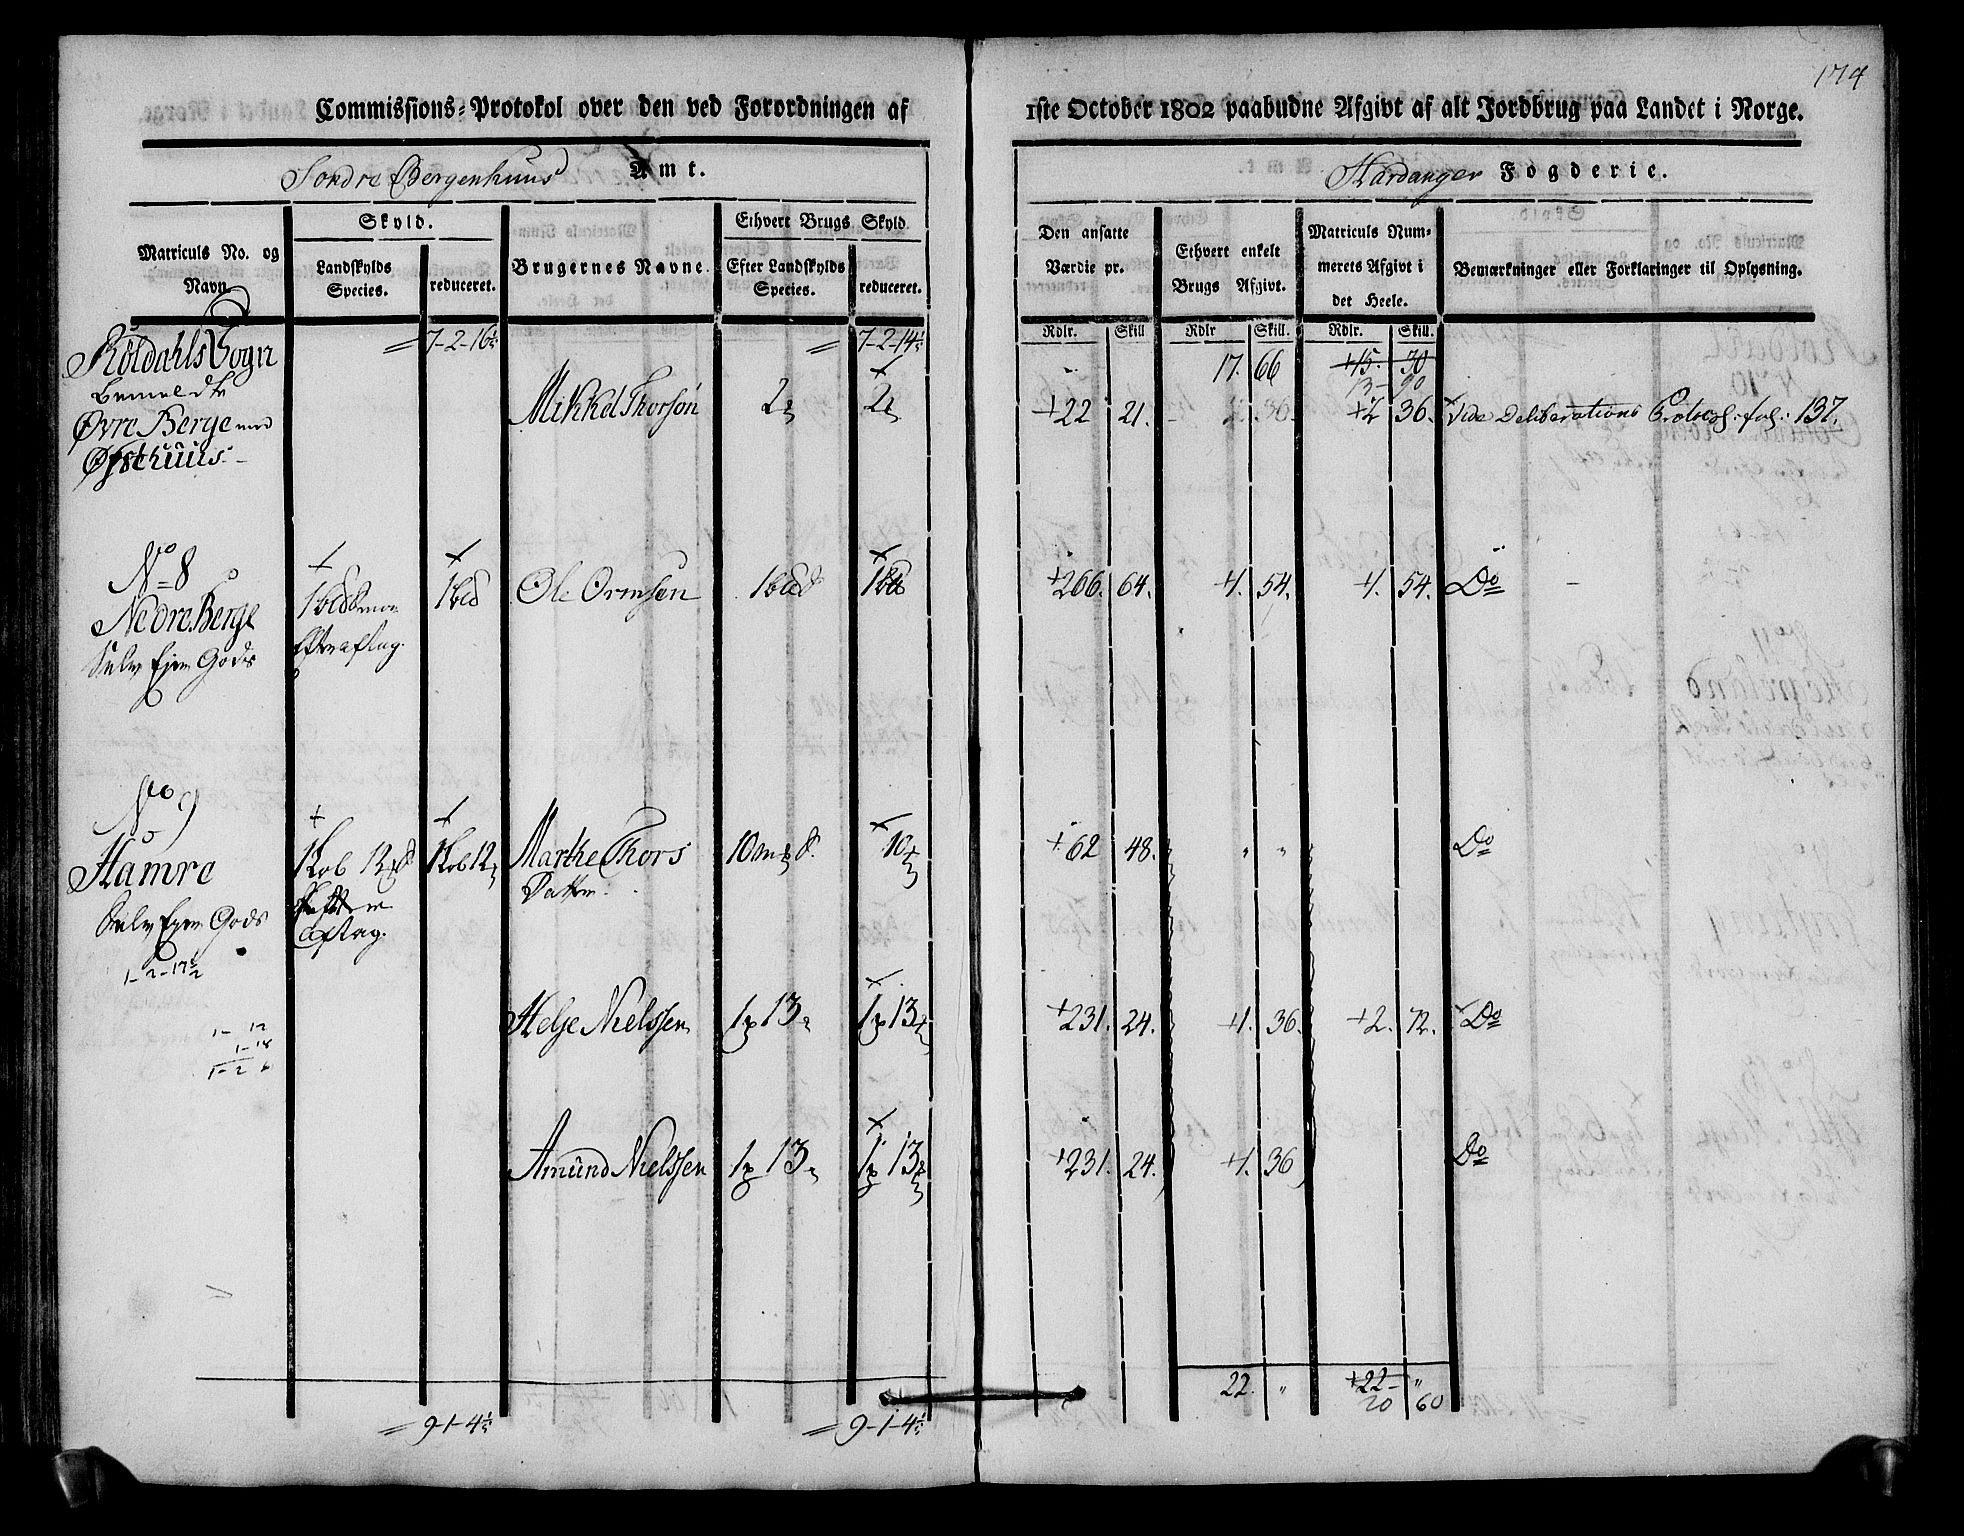 174
Commissions-Protokol over den ved Forordningen af 1ste October 1802 paabudne Afgivt af alt Jordbrug paa Landet i Norge.
Søndre Bergenhuus Amt. Hardanger Fogderie.
Matriculs No. og Navn.
Skyld.
Landskylds Species.
reduceret.
Brugernes Navne.
Ethvert Brugs Skyld.
Efter Landskylds Species.
reduceret.
Den ansatte Værdie pr.
Ethvert enkelt Brugs Afgivt.
Matriculs Nummerets Afgivt i det Heele.
Bemærkninger eller Forklaringer til Oplysning.
Rdlr. Skill Rdlr Skill. Rdlr. Skill.
Røldahls Sogn = 7-2-16½ = 7-2-14½ 17. 66 +15- 30
13- 90
bemeldte
Øvre Berge med Mikkel Thorsøn 2 2 +22 21. 2 36. +2 36. Vide Deliberations Protocol: fol: 137.
Østhuus.
No 8
Nedre Berge 1 1 Ole Ormsen 1 1 +266. 64. +1. 54. +1. 54. Do
Selv Ejer Gods
No 9
Hamre 1 Lob 12 1 Lob 12 Marthe Thors 10 10 +62 48. " " Do
Datter.
Selv Ejer Gods
aftag.
1-2-17½
Helje Nielssen 1 13 1 13 +231. 24. +1. 36. +2. 72. Do
1- 12
1-18
1-2 6
Amund Nielssen 1 13 1 13 +231. 24. +1. 36 Do
22. " +22- "
20 60
= 9-1-4½ = 9-1-4½